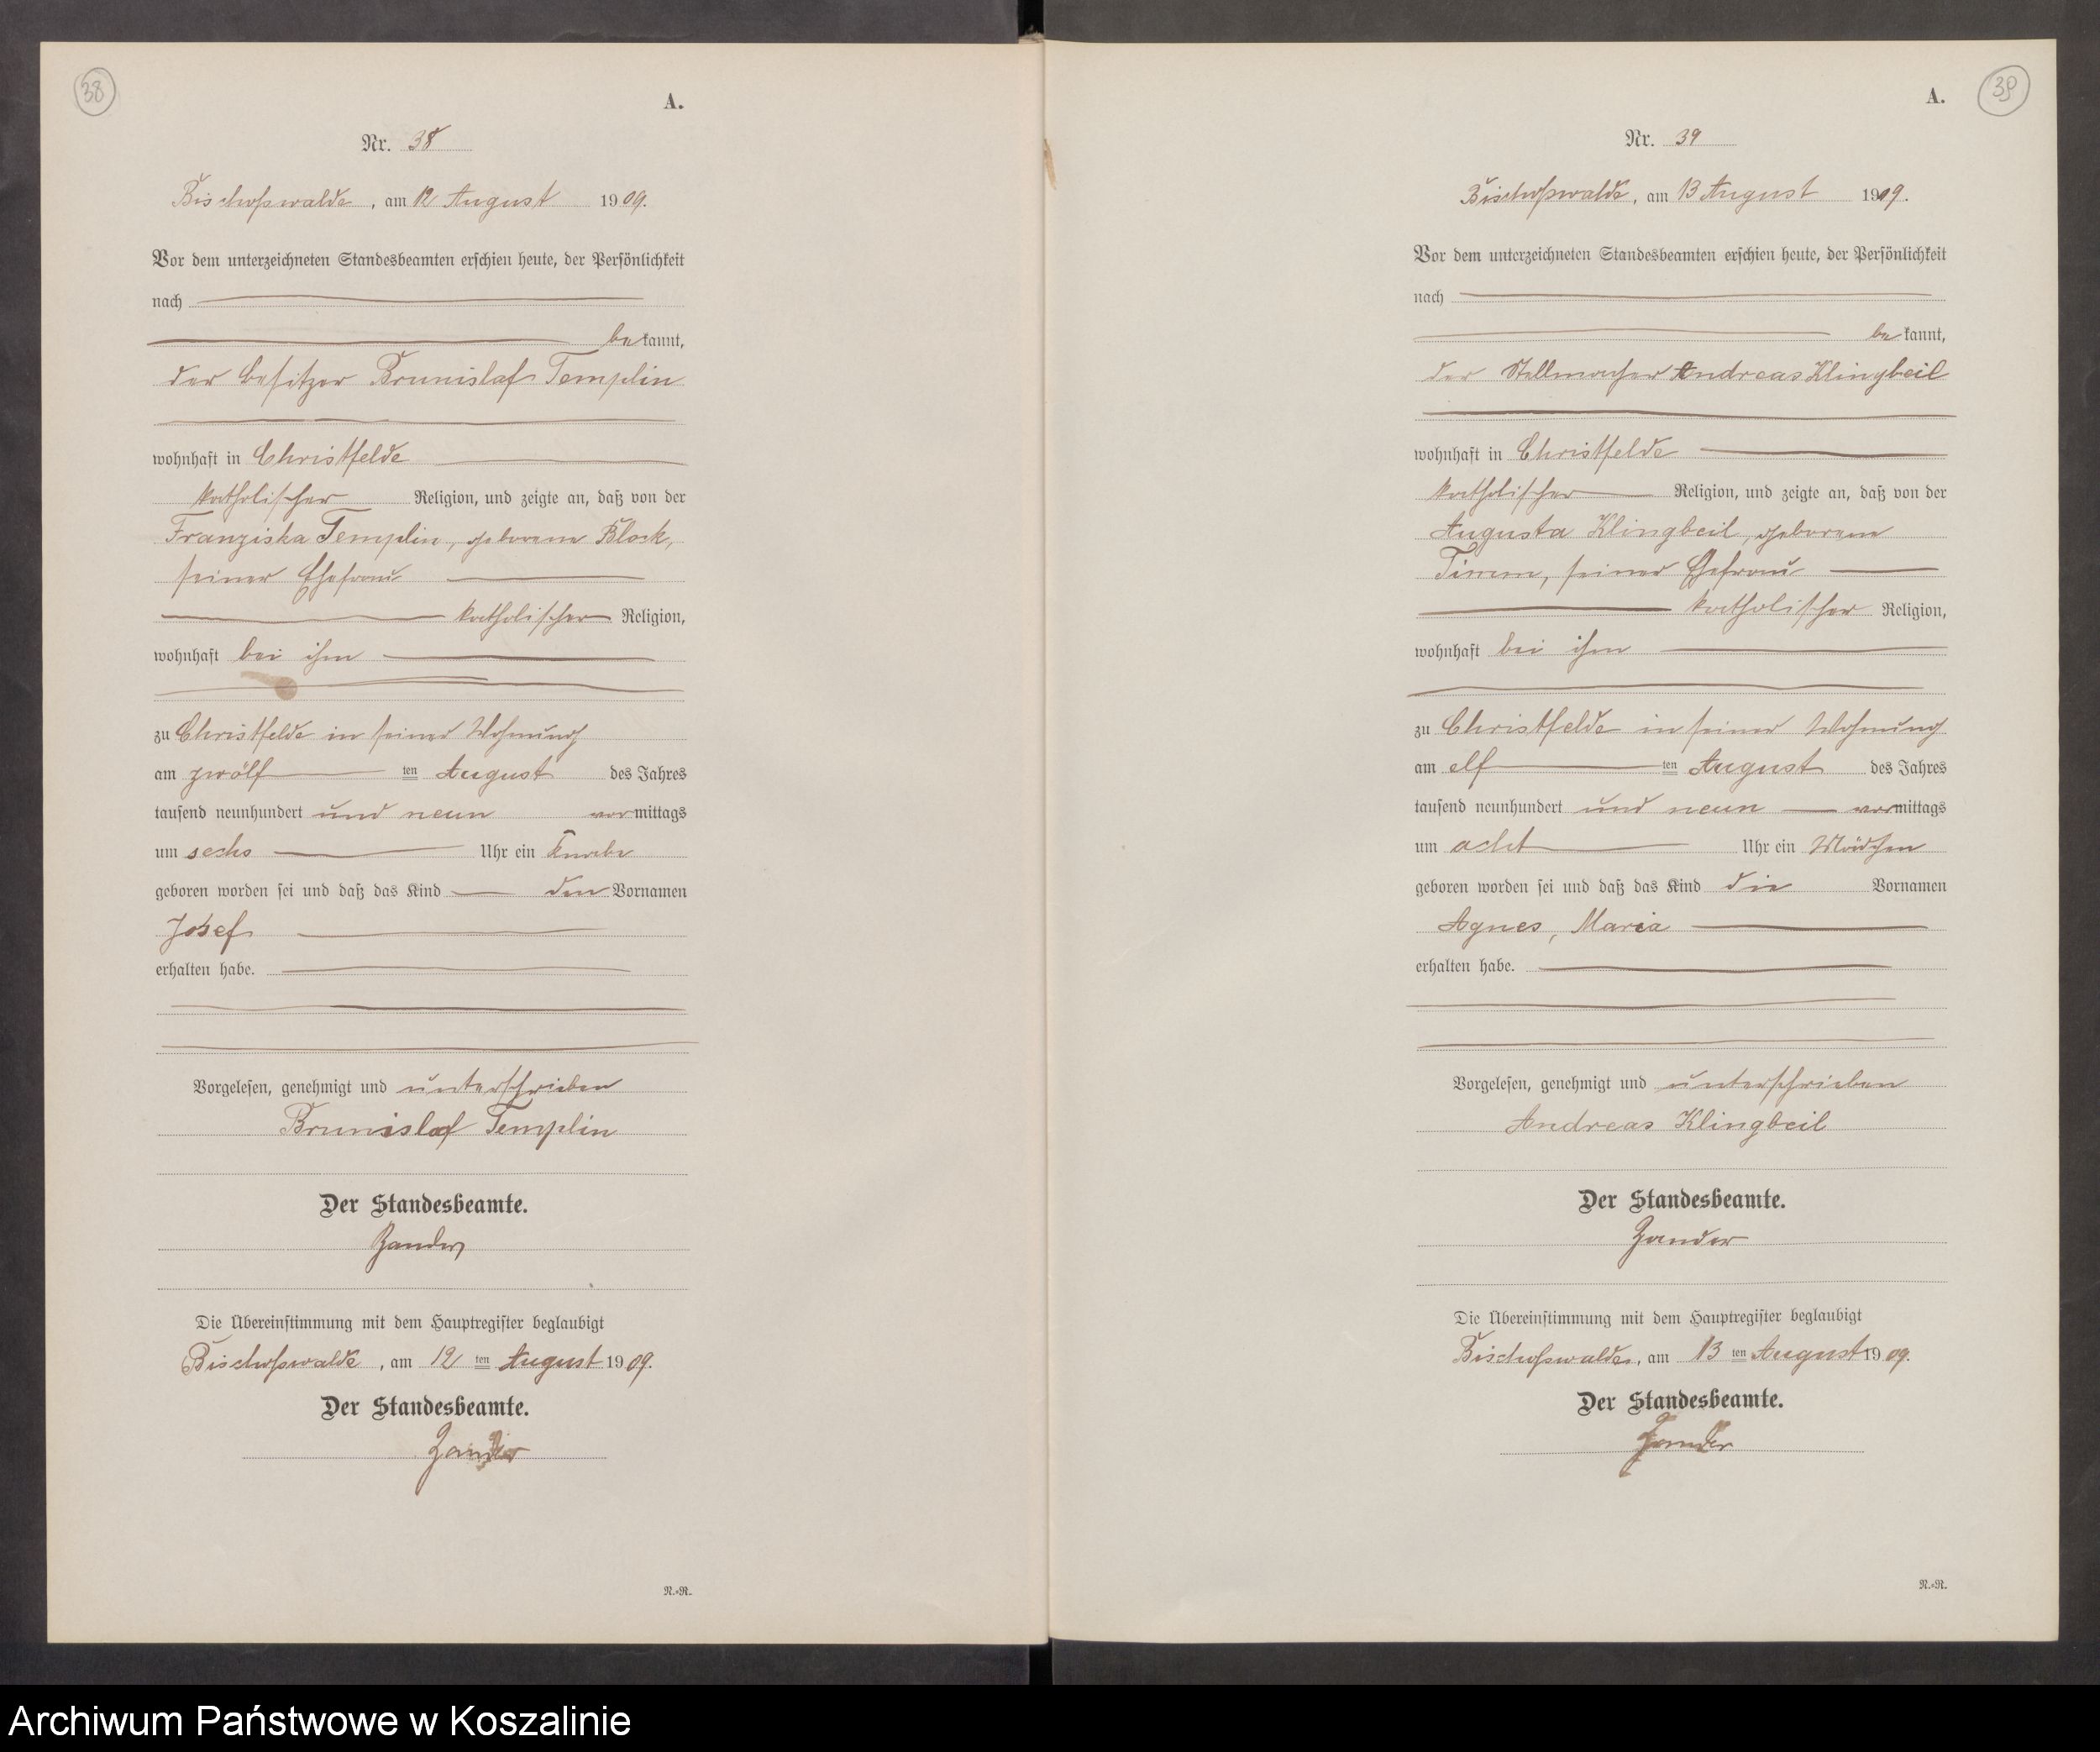 38
A.
Nr. 38
Bischofswalde, am 12 August 1909.
Vor dem unterzeichneten Standesbeamten erschien heute, der Persönlichkeit
nach
bekannt,
der Besitzer Brunislaf Templin
wohnhaft in Christfelde
katholischer Religion, und zeigte an, daß von der
Franziska Templin, geborene Block,
seiner Ehefrau
katholischer Religion,
wohnhaft bei ihm
zu Christfelde in seiner Wohnung
am zwölf ten August des Jahres
tausend neunhundert und neun vormittags
um sechs Uhr ein Knabe
geboren worden sei und daß das Kind den Vornamen
Josef
erhalten habe.
Vorgelesen, genehmigt und unterschrieben
Brunislaf Templin
Der Standesbeamte.
Zander
Die Übereinstimmung mit dem Hauptregister beglaubigt
Bischofswalde, am 12 ten August 1909.
Der Standesbeamte.
Zander
N.-R.
39
A.
Nr. 39
Bischofswalde, am 13 August 1909.
Vor dem unterzeichneten Standesbeamten erschien heute, der Persönlichkeit
nach
bekannt,
der Stellmacher Andreas Klingbeil
wohnhaft in Christfelde
katholischer Religion, und zeigte an, daß von der
Augusta Klingbeil, geborene
Timm, seiner Ehefrau
katholischer Religion,
wohnhaft bei ihm
zu Christfelde in seiner Wohnung
am elf ten August des Jahres
tausend neunhundert und neun vormittags
um acht Uhr ein Mädchen
geboren worden sei und daß das Kind die Vornamen
Agnes, Maria
erhalten habe.
Vorgelesen, genehmigt und unterschrieben
Andreas Klingbeil
Der Standesbeamte.
Zander
Die Übereinstimmung mit dem Hauptregister beglaubigt
Bischofswalde, am 13 ten August 1909.
Der Standesbeamte.
Zander
N.-R.
Archiwum Państwowe w Koszalinie